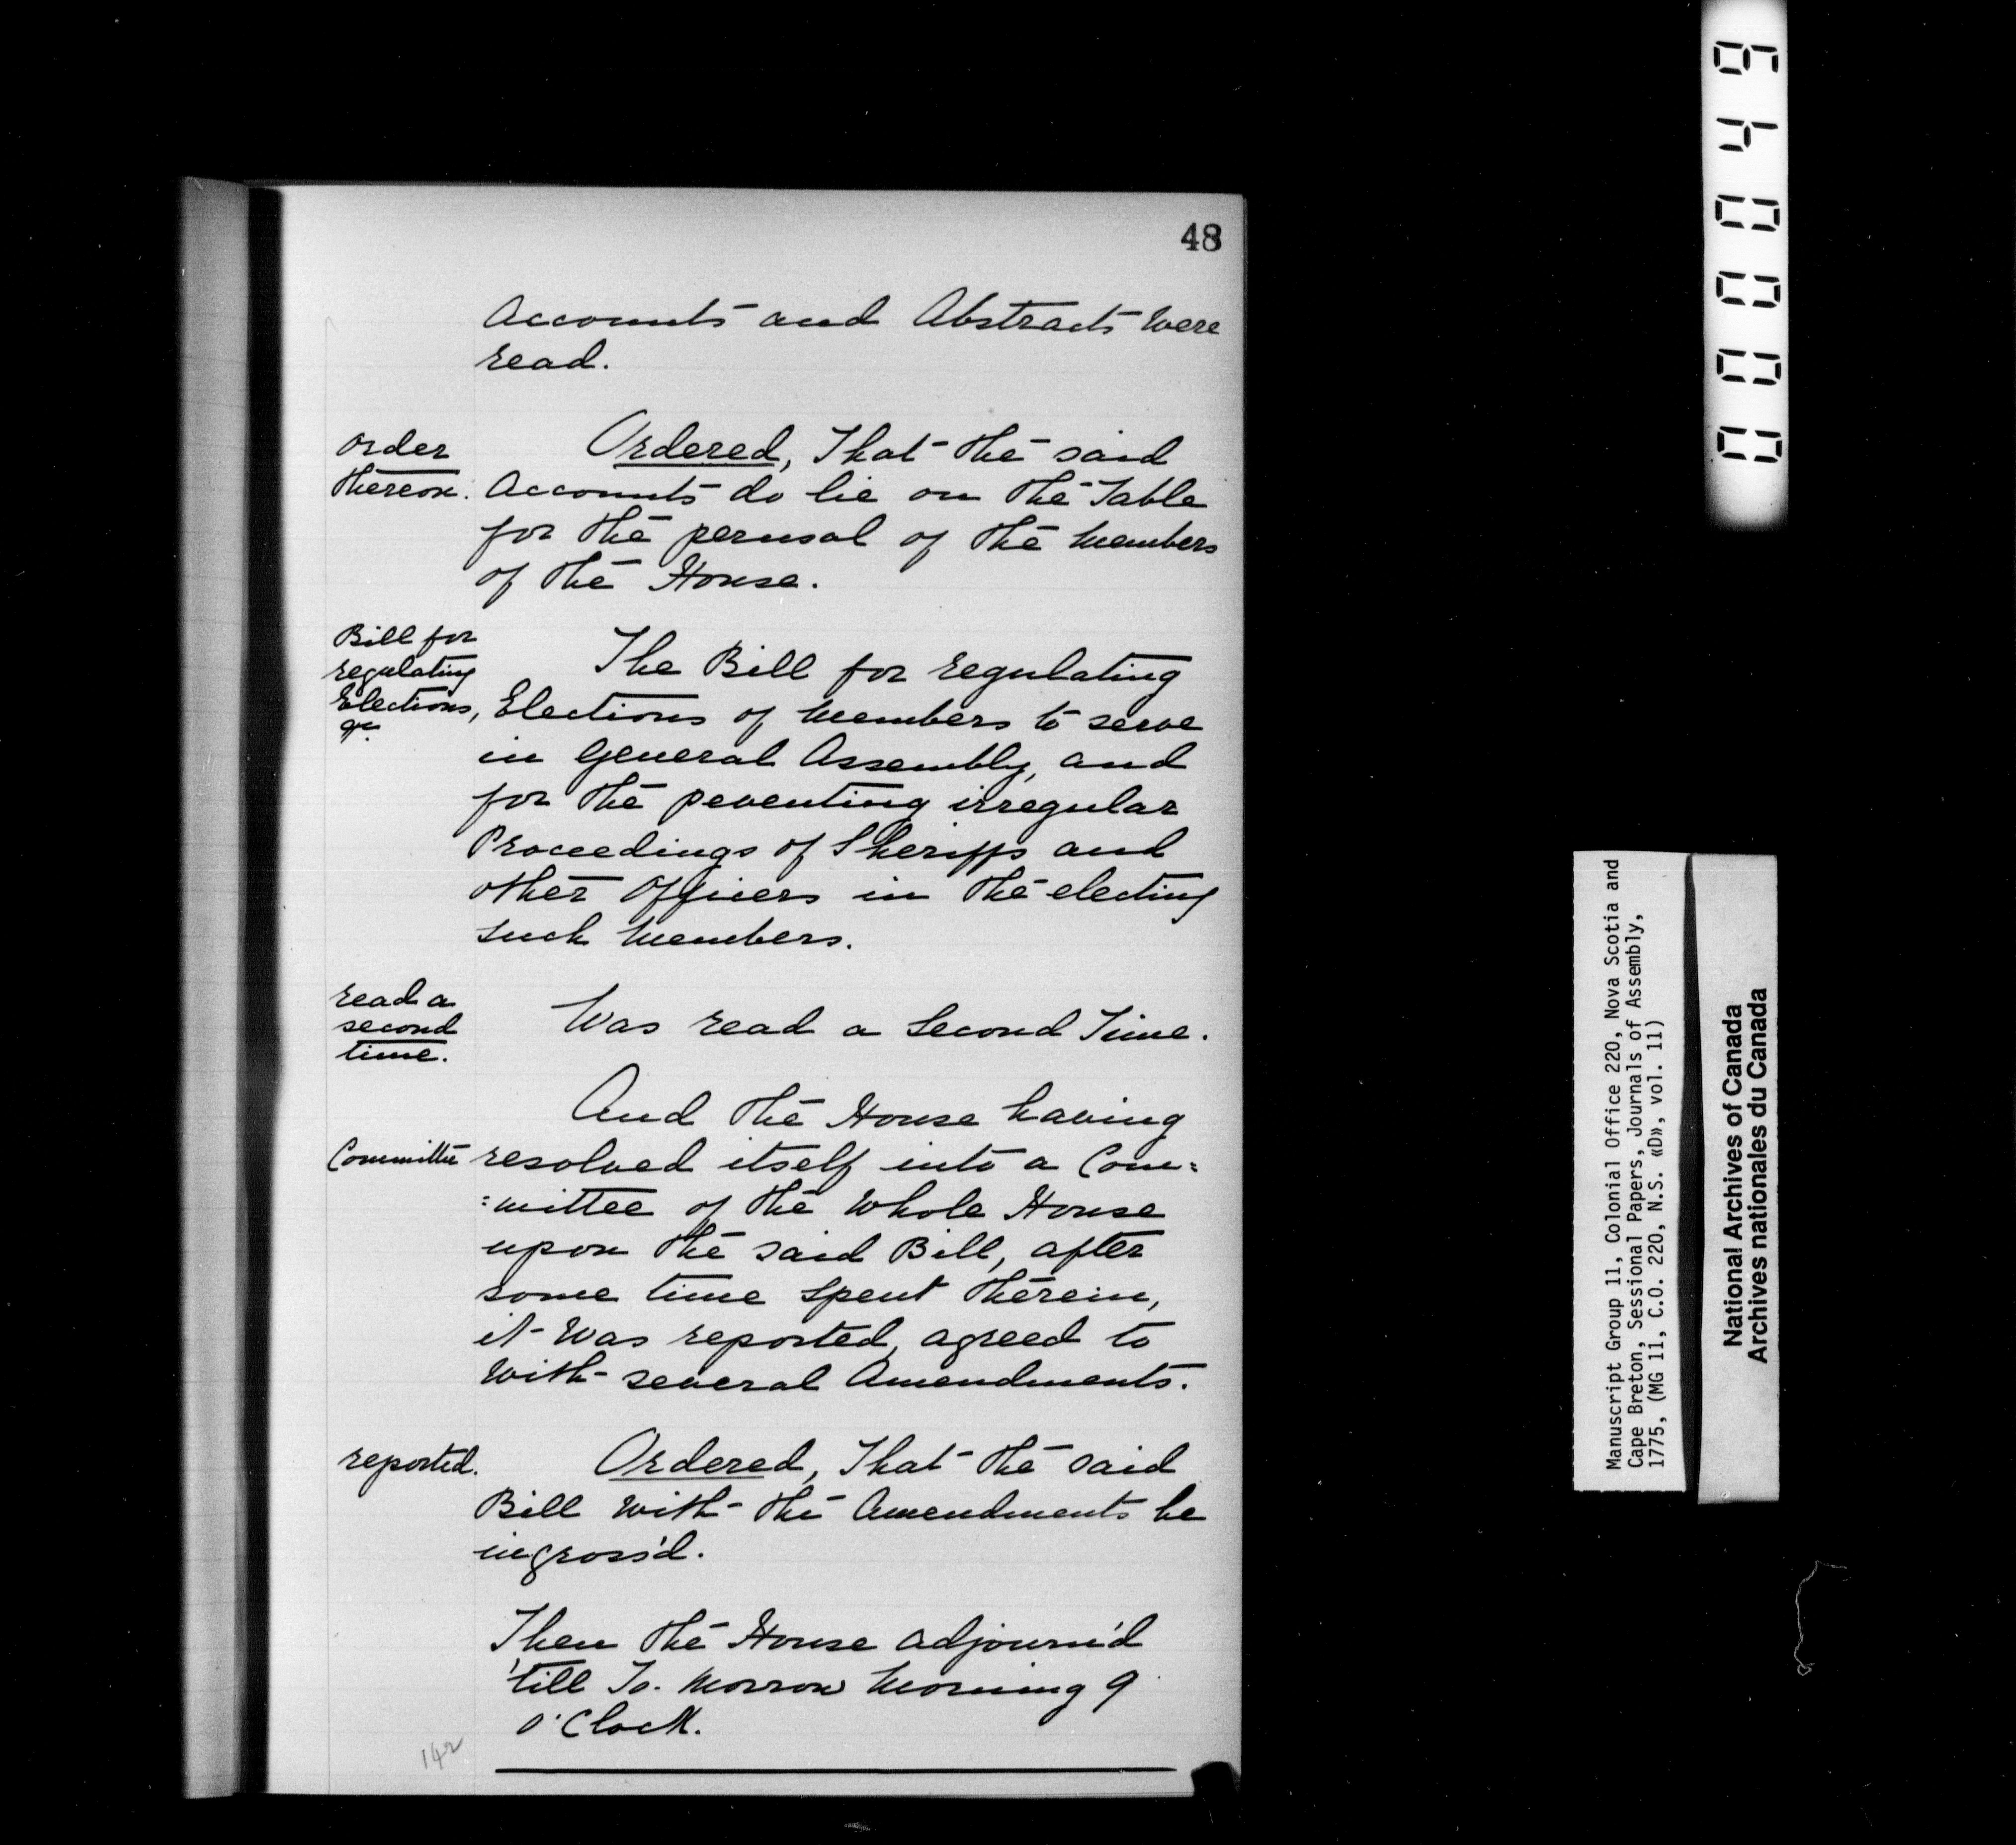 48
Accounts and Abstracts were
read.
order
thereon.
Ordered, That the said
Accounts do lie on the Table
for the perusal of the Members
of the House.
Bill for
regulating
Elections,
&c
The Bill for regulating
Elections of Members to serve
in General Assembly, and
for the peventing irregular
Proceedings of Sheriffs and
other Officers in the electing
such Members.
read a
second
time.
Was read a Second Time.
And the House having
Committee
resolved itself into a Com=
=mittee of the Whole House
upon the said Bill, after
some time spent therein,
it was reported, agreed to
with several Amendments.
reported.
Ordered, That the said
Bill with the Amendments be
ingross'd.
Then the House adjourn'd
'till To. Morrow Morning 9
O'Clock.
142
000049
Manuscript Group 11, Colonial Office 220, Nova Scotia and
Cape Breton, Sessional Papers, Journals of Assembly,
1775, (MG 11, C.O. 220, N.S. «D», vol. 11)
National Archives of Canada
Archives nationales du Canada